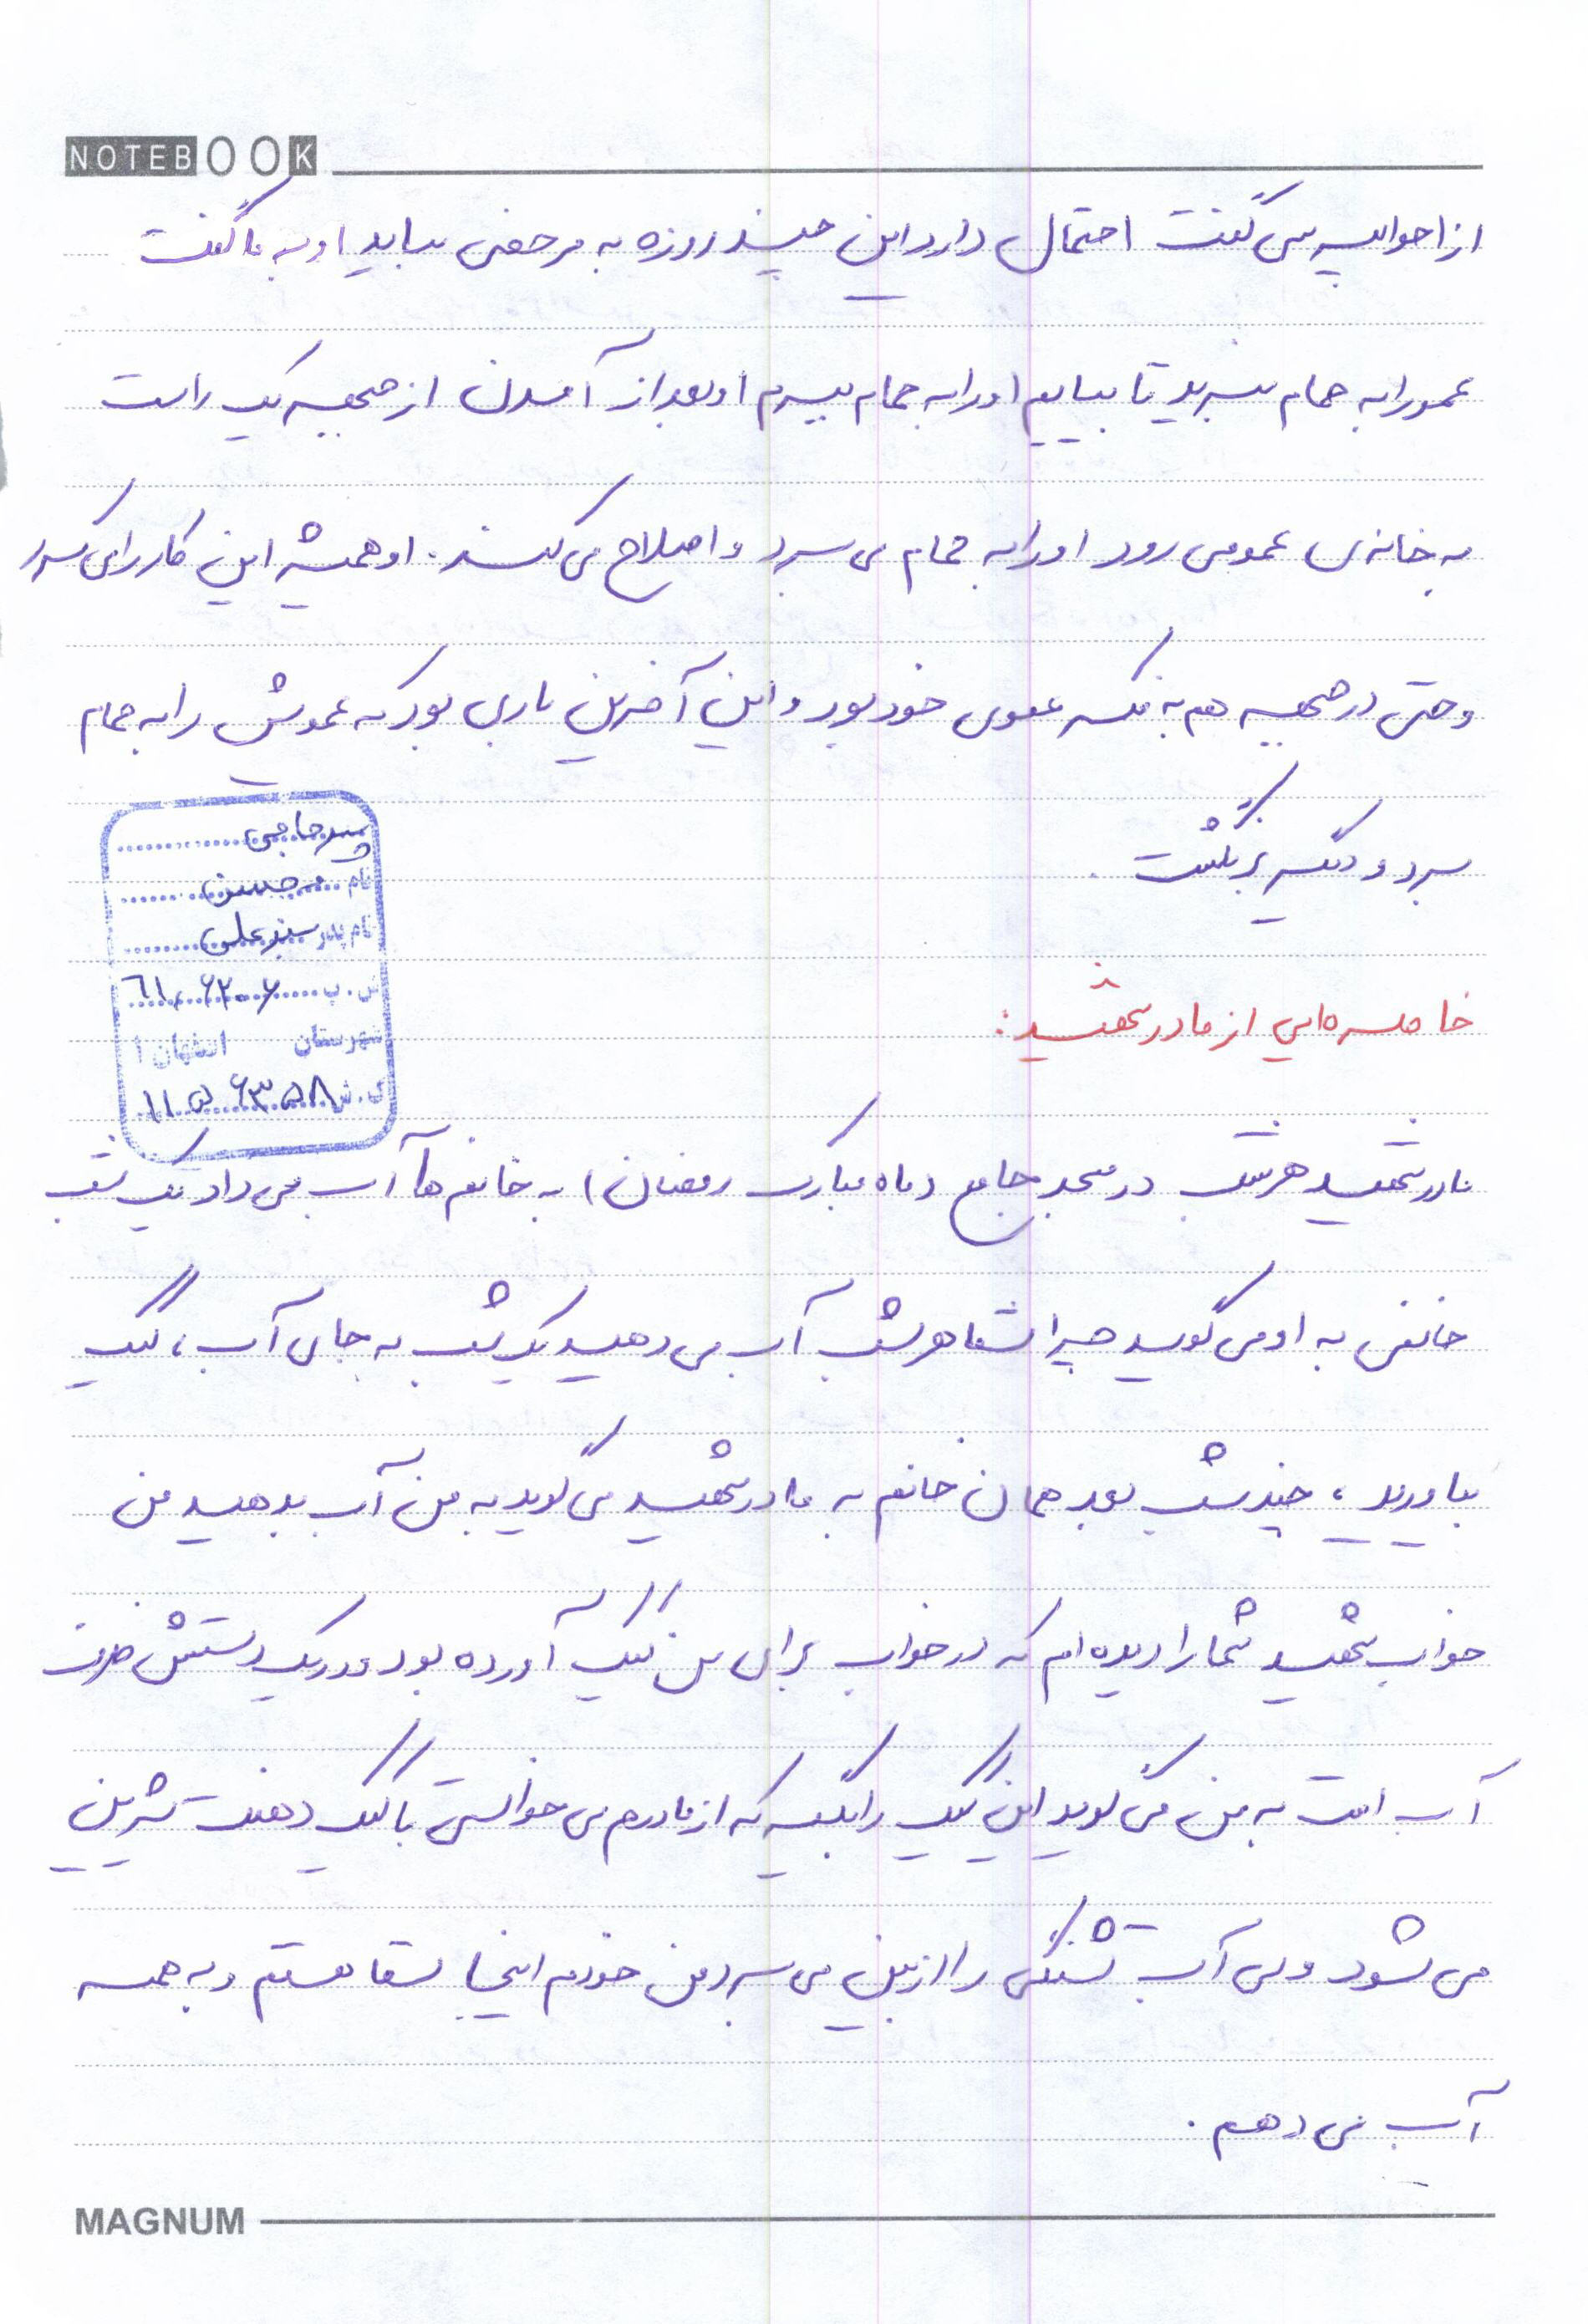 NOTEBOOK
از احوالپرسی گفت احتمال دارد این چند روزه به مرخصی بیاید او به ما گفت
عمو را به حمام نبرید تا بیایم او را به حمام ببرم او بعد از آمدن از جبهه یک راست
به خانه‌ی عمومی رود او را به حمام می برد و اصلاح می کند. او همیشه این کار را می کرد
و حتی در جبهه هم به فکر عموی خود بود و این آخرین باری بود که عمویش را به حمام
برد و دیگر برنگشت.
پیرحاجی
نام محسن
نام پدر سبزعلی
ش.پ ۶۱،۶۲۰۰۶
شهرستان اصفهان ۱
ک.ش ۱۱۵۶۳۵۸
خاطره‌ایی از مادر شهید:
مادر شهید هر شب در مسجد جامع (ماه مبارک رمضان) به خانم ها آب می داد یک شب
خانمی به او می گوید چرا شما هر شب آب می دهید یک شب به جای آب، کیک
بیاورید، چند شب بعد همان خانم به مادر شهید می گوید به من آب بدهید من
خواب شهید شما را دیده ام که در خواب برای من کیک آورده بود و در یک دستش ظرف
آب است به من می گوید این کیک را بگیر که از مادرم می خواستی با کیک دهنت شیرین
می شود ولی آب تشنگی را از بین می برد من خودم اینجا سقا هستم و به همه
آب می دهم.
MAGNUM